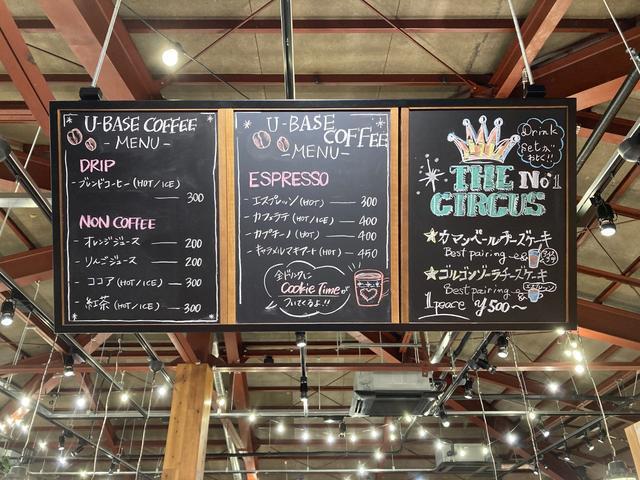 U-BASE COFFEE
- MENU -
DRIP
- ブレンドコーヒー (HOT/ICE)
300
NON COFFEE
- オレンジジュース — 200
- りんごジュース — 200
- ココア (HOT/ICE) — 300
- 紅茶 (HOT/ICE) — 300
U-BASE
COFFEE
- MENU -
ESPRESSO
- エスプレッソ (HOT) — 300
- カフェラテ (HOT/ICE) — 400
- カプチーノ (HOT) — 400
- キャラメルマキアート (HOT) — 450
全ドリンクに
Cookie Timeが
ついてくるよ!!
Drink
setが
おとく!!
THE No.1
CIRCUS
カマンベールチーズケーキ
Best pairing
ゴルゴンゾーラチーズケーキ
Best pairing
1peace ¥500~